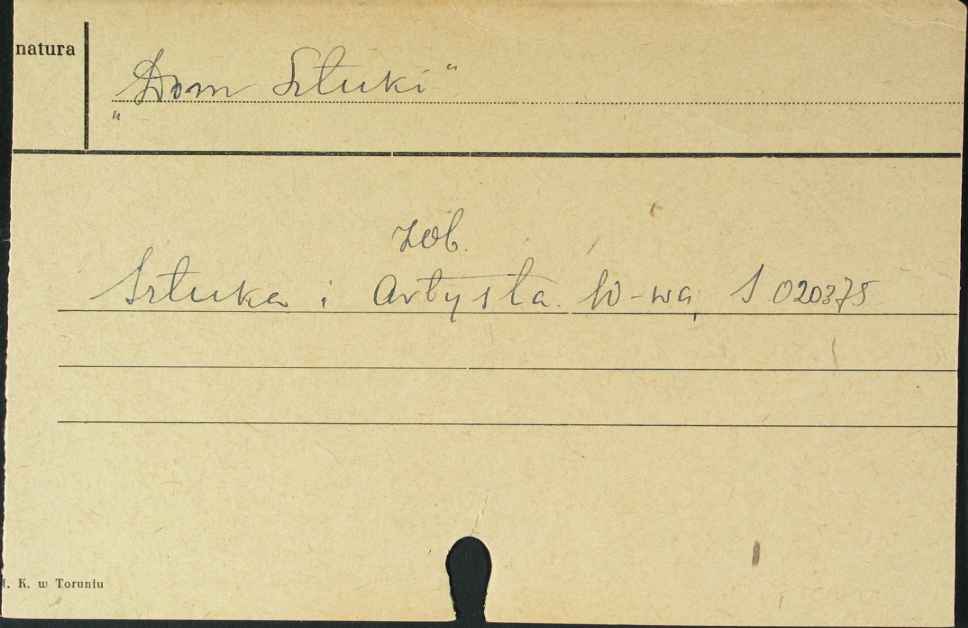 natura
„Dom Sztuki"
zob.
Sztuka i Artysta. W-wa, S 020375
K. w Toruniu